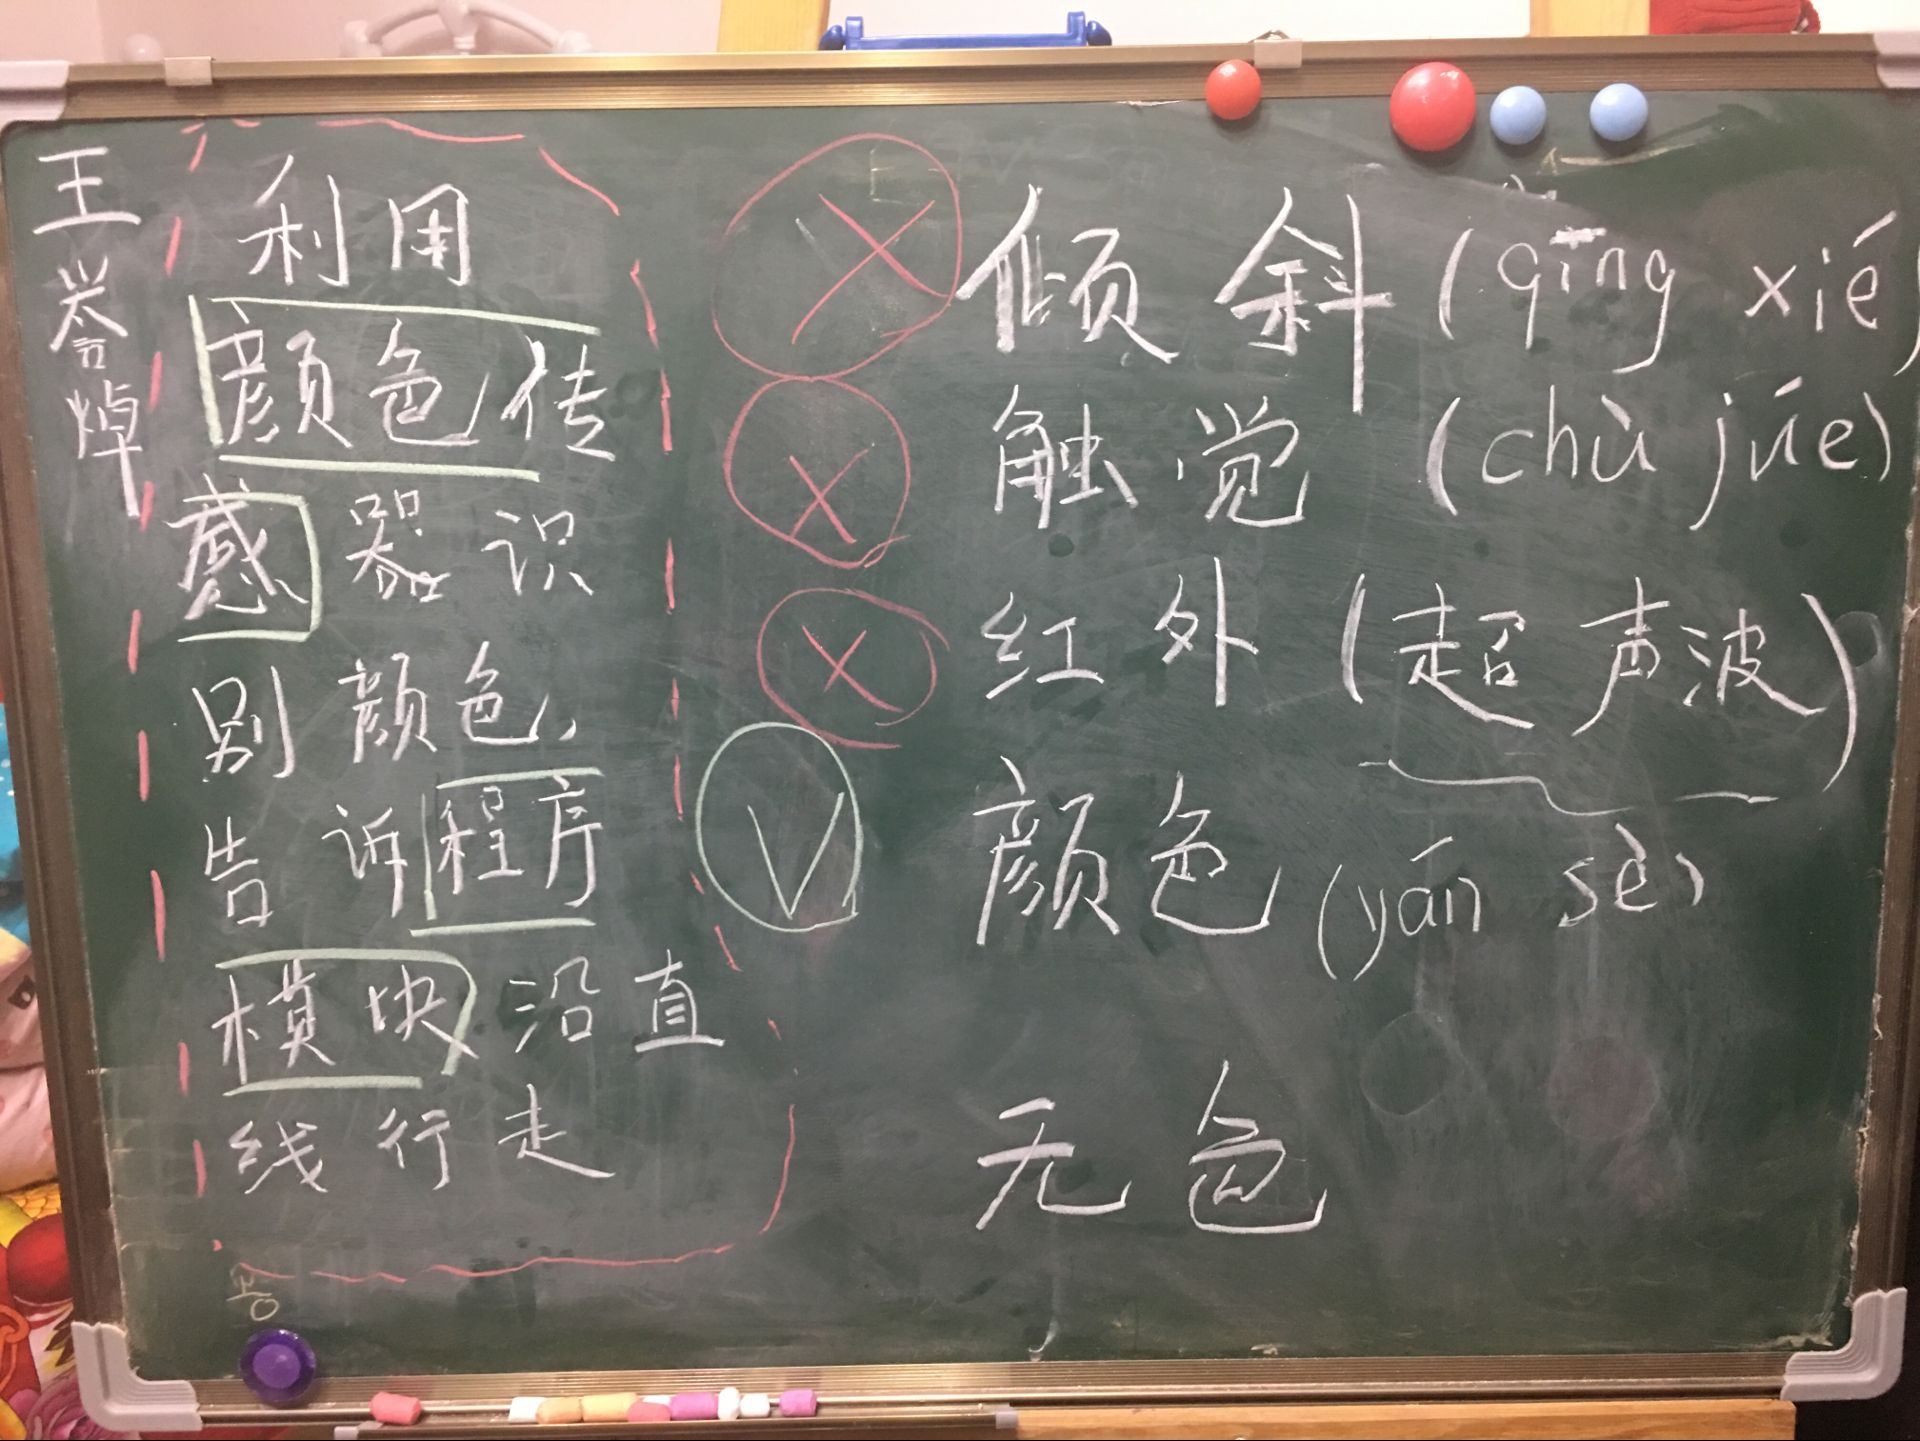 王誉焯
利用
颜色传
感器识
别颜色,
告诉程序
模块沿直
线行走
倾斜(qīng xié)
触觉(chù júe)
红外(超声波)
颜色(yán sè)
无色